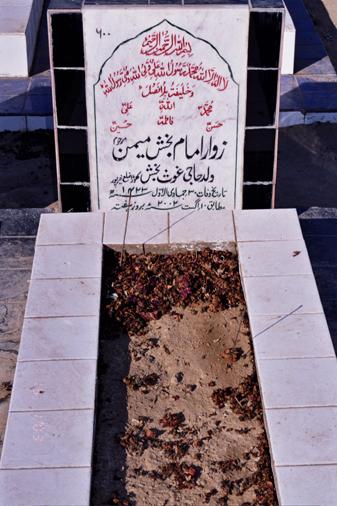 ۶۰۰
بسم اللہ الرحمن الرحیم
لا الہ الا اللہ محمد رسول اللہ علی ولی اللہ وصی رسول اللہ
وخلیفتہ بلا فصل
محمدؐ اللہ علیؑ
حسنؑ فاطمہؑ حسینؑ
زوار امام بخش میمن مرحوم
ولد حاجی غوث بخش
تاریخ وفات ۳۰ جمادی الاول ۱۴۲۳ھ
بمطابق ۱۰ اگست ۲۰۰۲ء بروز ہفتہ